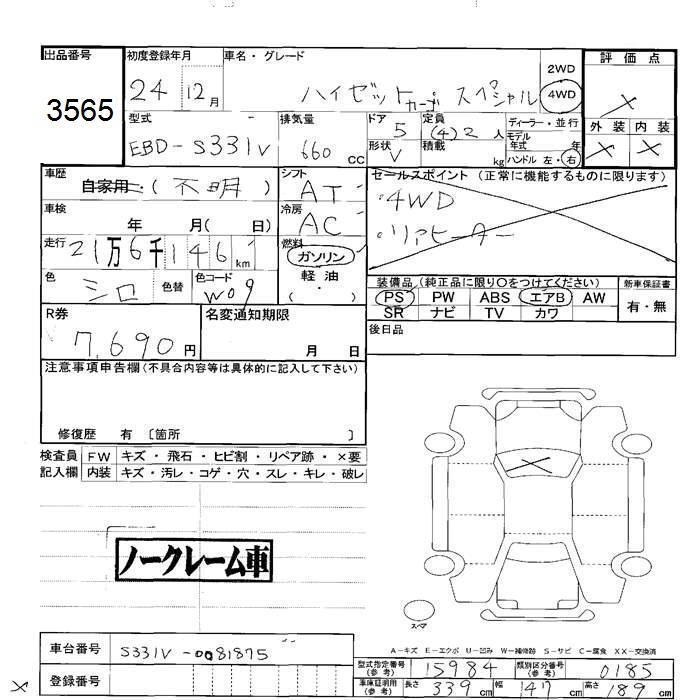 出品番号 初度登録年月 車名・グレード 2WD 評価点
3565 24年 12月 ハイゼットカーゴ スペシャル 4WD ×
型式 排気量 ドア 定員 ディーラー・並行 外装 内装
EBD-S331V 660cc 5 (4)2人 モデル年式 年 × ×
形状 V 積載 kg ハンドル 左・右
車歴 シフト セールスポイント (正常に機能するものに限ります)
自家用 (不明) AT ・4WD
車検 年 月( 日) 冷房 AC ・リアヒーター
走行 21万6千146km 燃料 ガソリン
色 シロ 色替 色コード W09 軽油 装備品 (純正品に限り○をつけてください) 新車保証書
( ・ ) PS PW ABS エアB AW 有・無
R券 名変通知期限 SR ナビ TV カワ
7,690円 月 日 後日品
注意事項申告欄(不具合内容等は具体的に記入して下さい)
修復歴 有 〔箇所 〕
検査員 FW キズ・飛石・ヒビ割・リペア跡・×要
記入欄 内装 キズ・汚レ・コゲ・穴・スレ・キレ・破レ
ノークレーム車
スペア
A-キズ E-エクボ U-凹み W-補修跡 S-サビ C-腐食 XX-交換済
車台番号 S331V-0081875
型式指定番号(参考) 15984 類別区分番号(参考) 0185
登録番号
車庫証明用(参考) 長さ 339cm 幅 147cm 高さ 189cm
×